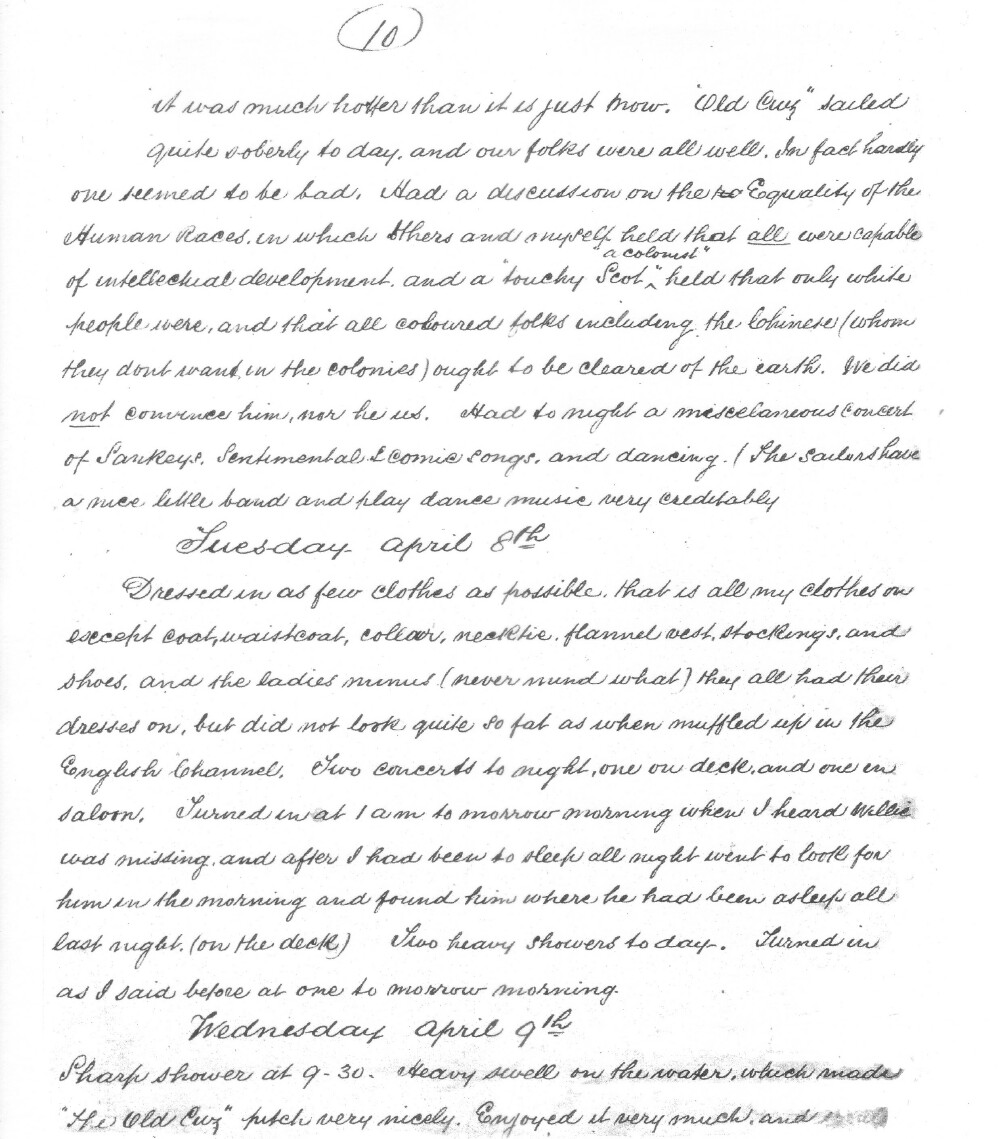 10
it was much hotter than it is just now. "Old Cuz" sailed
quite soberly to day. and our folks were all well. In fact hardly
one seemed to be bad. Had a discussion on the Equality of the
Human Races. in which others and myself held that all were capable
"a colonist"
of intellectual development. and a "touchy Scot", held that only white
people were, and that all coloured folks including the Chinese (whom
they dont want in the colonies) ought to be cleared of the earth. We did
not convince him, nor he us. Had to night a miscelaneous concert
of Sankeys. Sentimental & comic songs. and dancing. (The sailors have
a nice little band and play dance music very creditably
Tuesday April 8th
Dressed in as few clothes as possible. that is all my clothes on
except coat, waistcoat, collar, necktie, flannel vest, stockings, and
shoes. and the ladies minus (never mind what) they all had their
dresses on, but did not look quite so fat as when muffled up in the
English Channel. Two concerts to night, one on deck. and one in
saloon. Turned in at 1 am to morrow morning when I heard Willie
was missing. and after I had been to sleep all night went to look for
him in the morning and found him where he had been asleep all
last night. (on the deck) Two heavy showers to day. Turned in
as I said before at one to morrow morning.
Wednesday April 9th
Sharp shower at 9-30. Heavy swell on the water, which made
"The Old Cuz" pitch very nicely. Enjoyed it very much, and